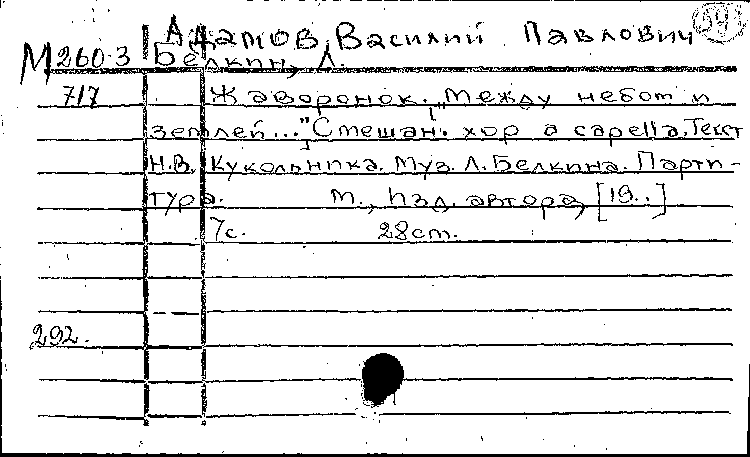 Адамов, Василий Павлович
М 260-3 Белкин, Л.
717 Жаворонок. „Между небом и
землей..." Смешан. хор a capella. Текст
Н.В. Кукольника. Муз. Л. Белкина. Парти-
тура. М., Изд. автора, [19..]
7с. 28cm.
292.